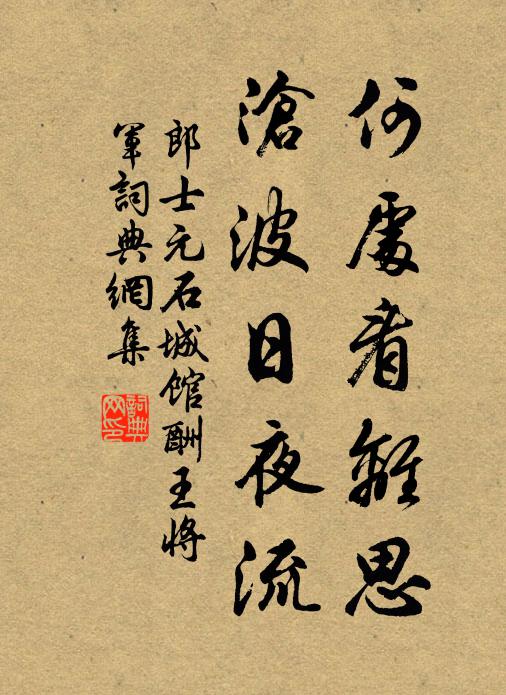 何處看離思
滄波日夜流
郎士元石城館酬王將
軍詞典網集
詞典網印